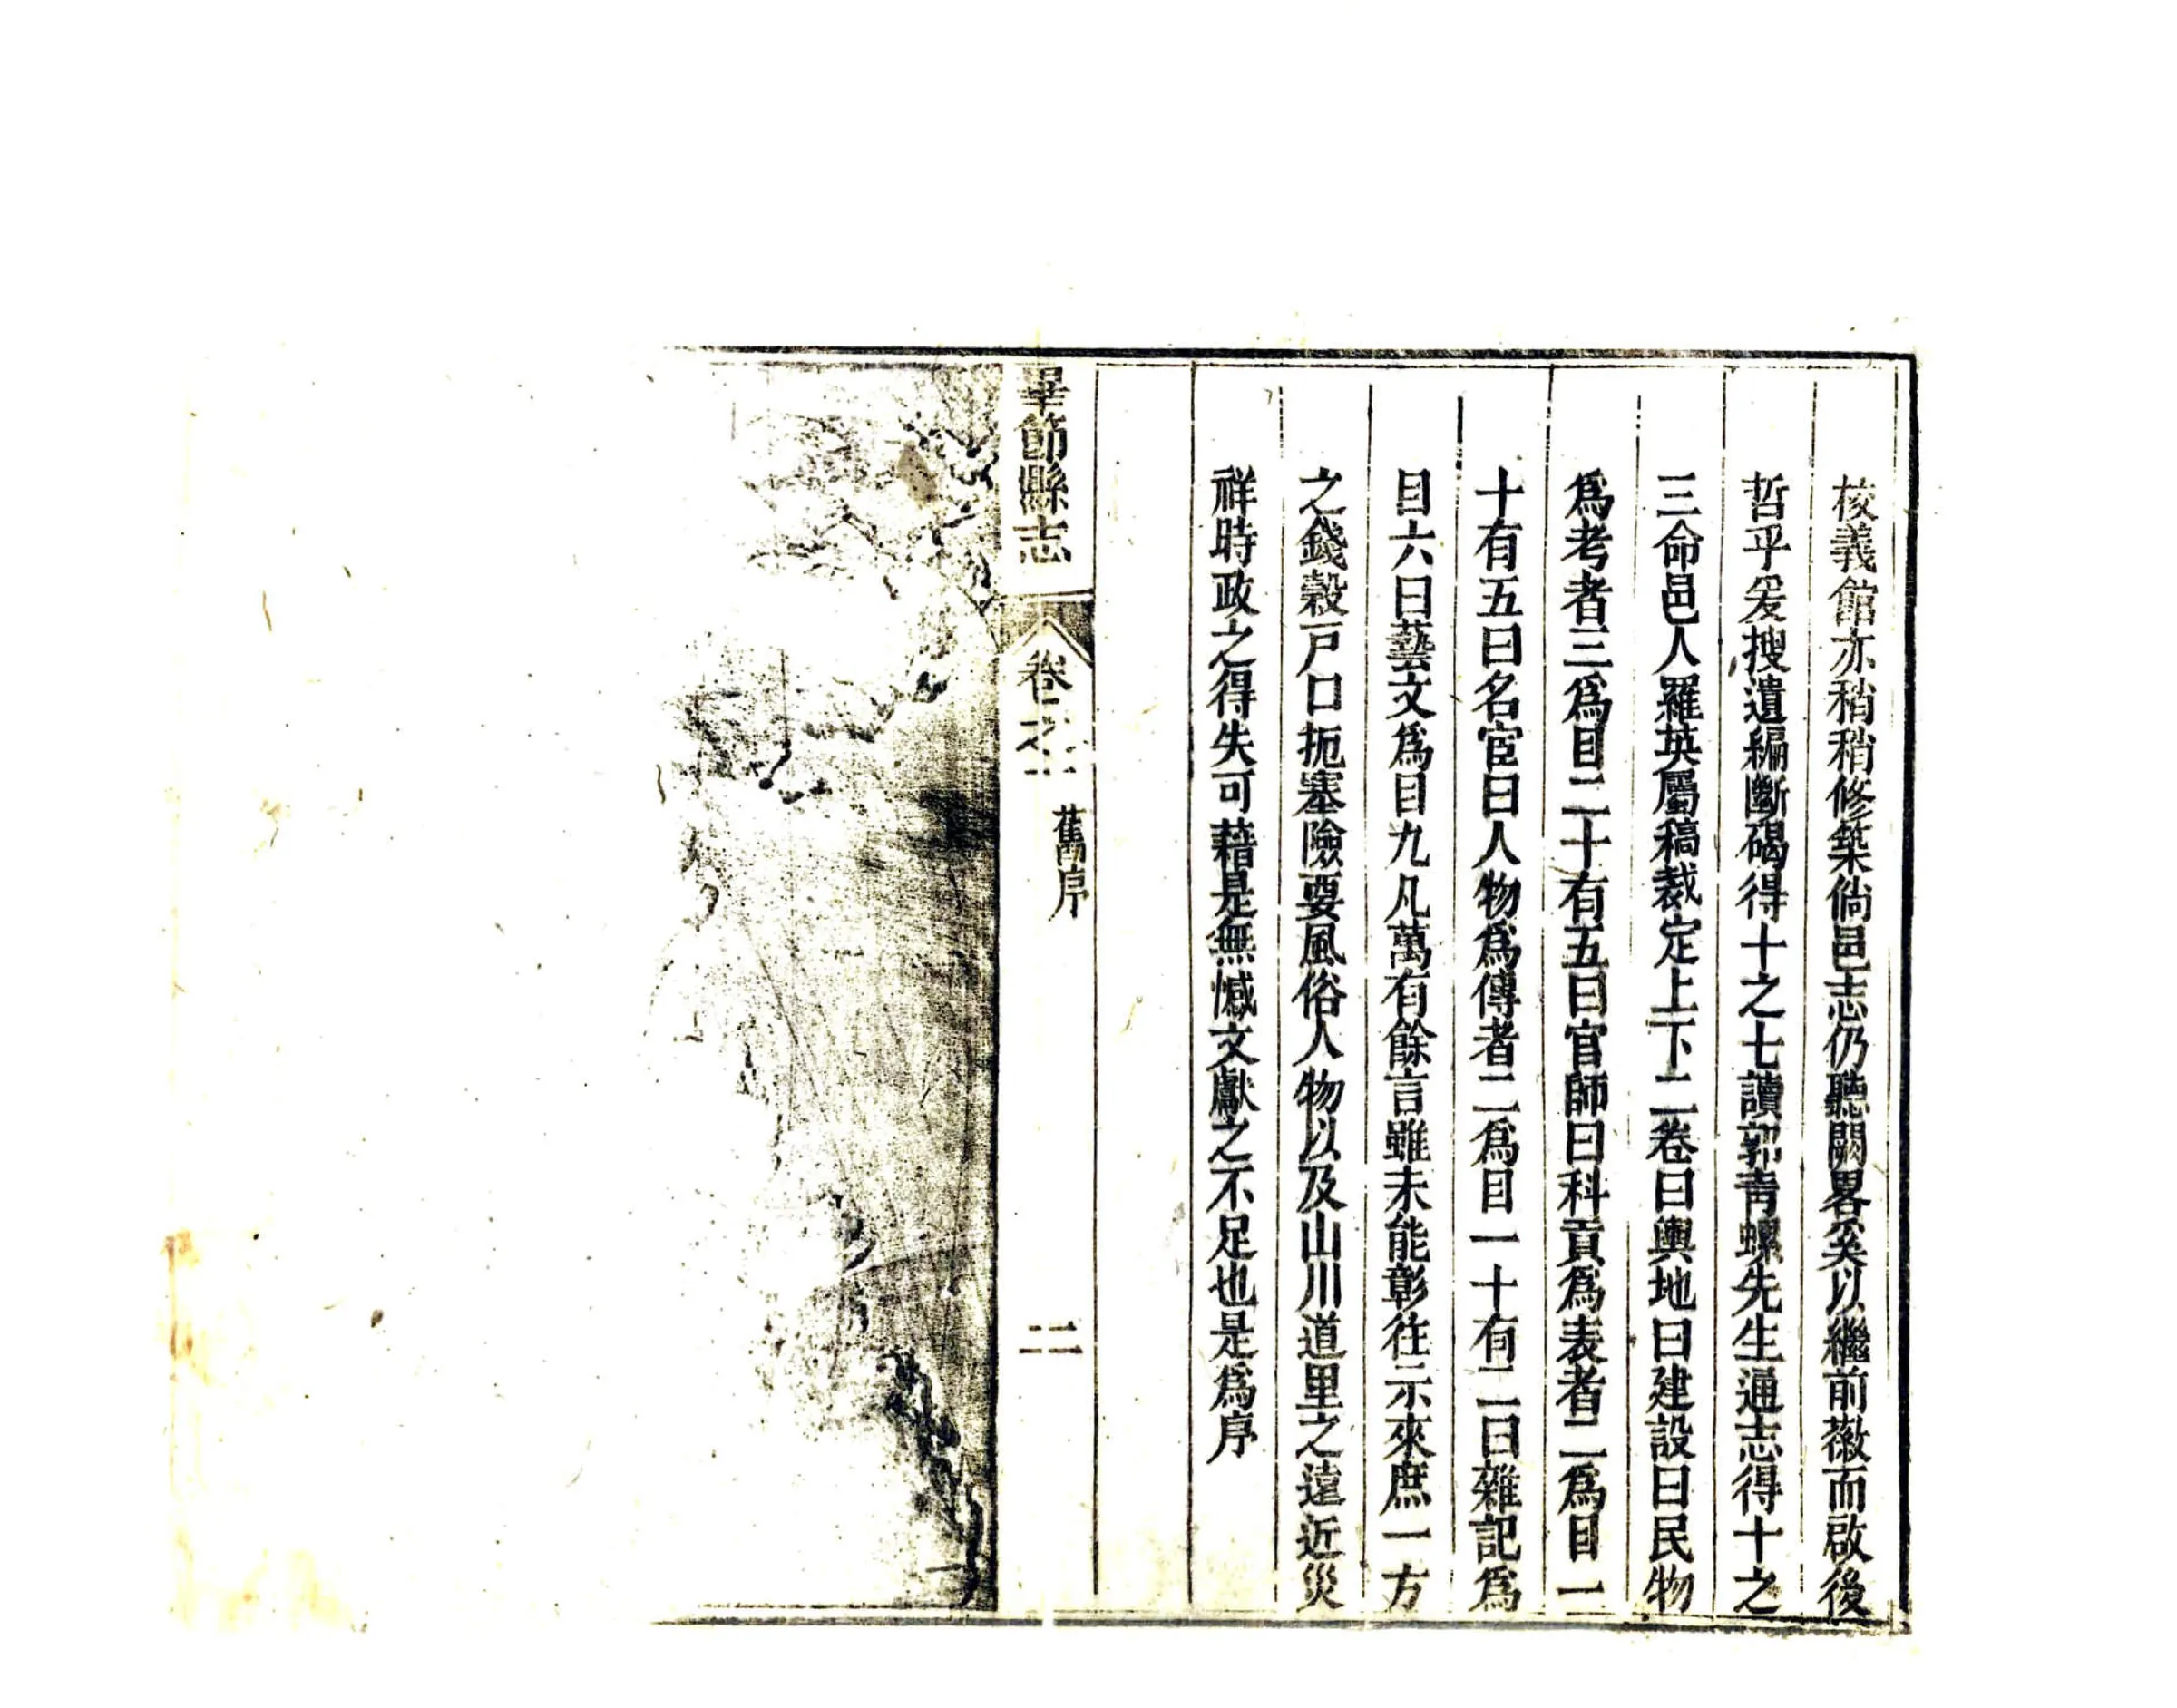 校義館亦稍稍修築倘邑志仍聽闕畧奚以繼前徽而啟後
哲乎爰搜遺編斷碣得十之七讀郭青螺先生通志得十之
三命邑人羅英屬稿裁定上下二卷曰輿地曰建設曰民物
爲考者三爲目二十有五曰官師曰科貢爲表者二爲目一
十有五曰名宦曰人物爲傳者二爲目一十有二曰雜記爲
目六曰藝文爲目九凡萬有餘言雖未能彰往示來庶一方
之錢穀戸口扼塞險要風俗人物以及山川道里之遠近災
祥時政之得失可藉是無憾文獻之不足也是爲序
畢節縣志
卷之一
舊序
二